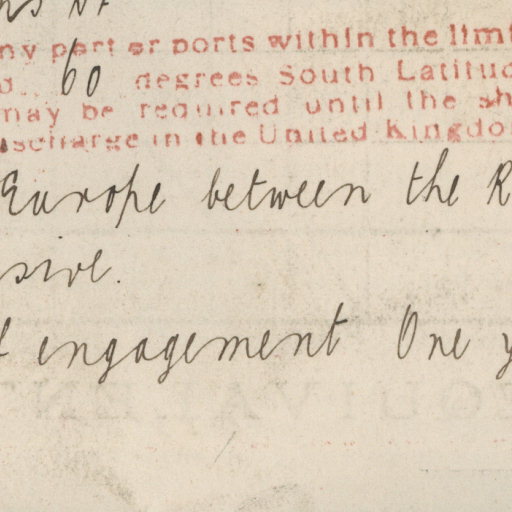 ny part or ports within the limi
60 degrees South Latitud
may be required until the sh
discharge in the United Kingdo
Europe between the R
sive.
engagement One y